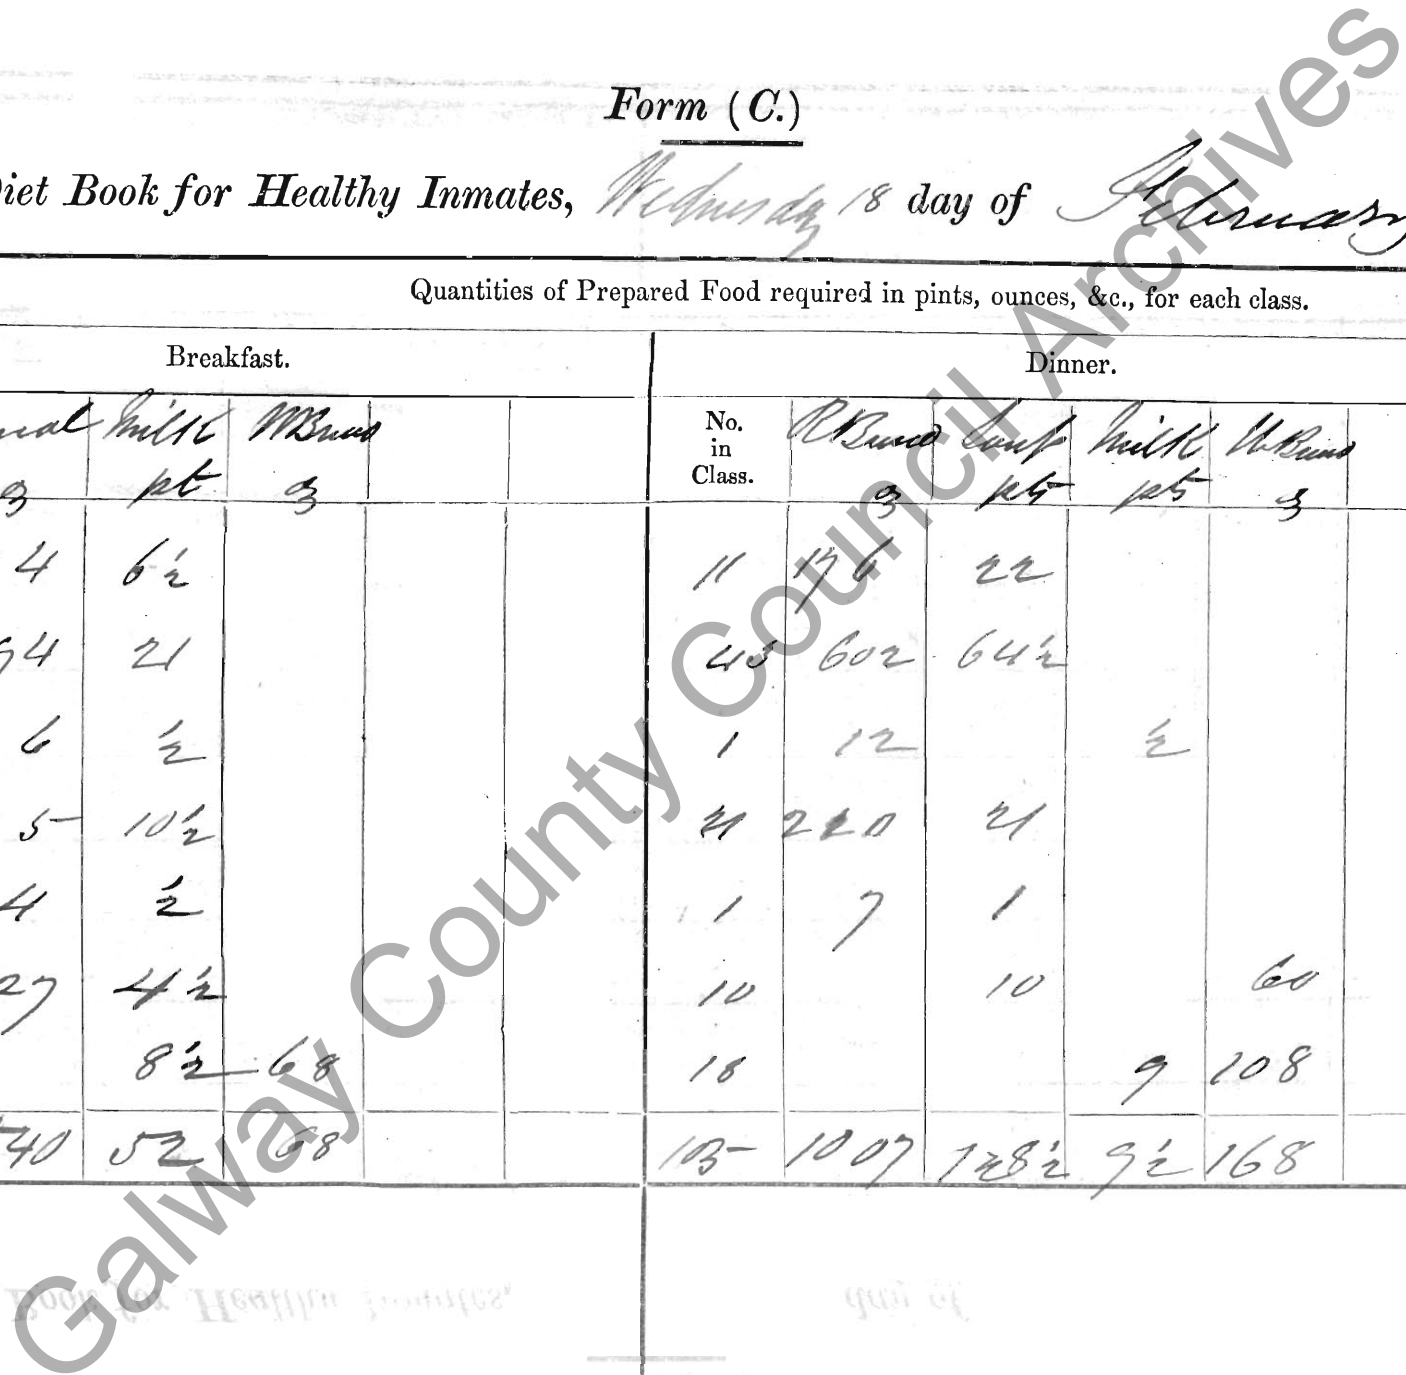 Form (C.)
Diet Book for Healthy Inmates, Wednesday 18 day of February
Quantities of Prepared Food required in pints, ounces, &c., for each class.
Breakfast. Dinner.
Milk No. in Class. Soup Milk
pt pts pts
4 6½ 11 176 22
21 43 602 64½
6 ½ 1 12 ½
5 10½ 21 21
4 ½ 1 7 1
27 4½ 10 10 60
8½ 68 18 9 108
40 52 68 105 1007 9½ 168
Galway County Council Archives